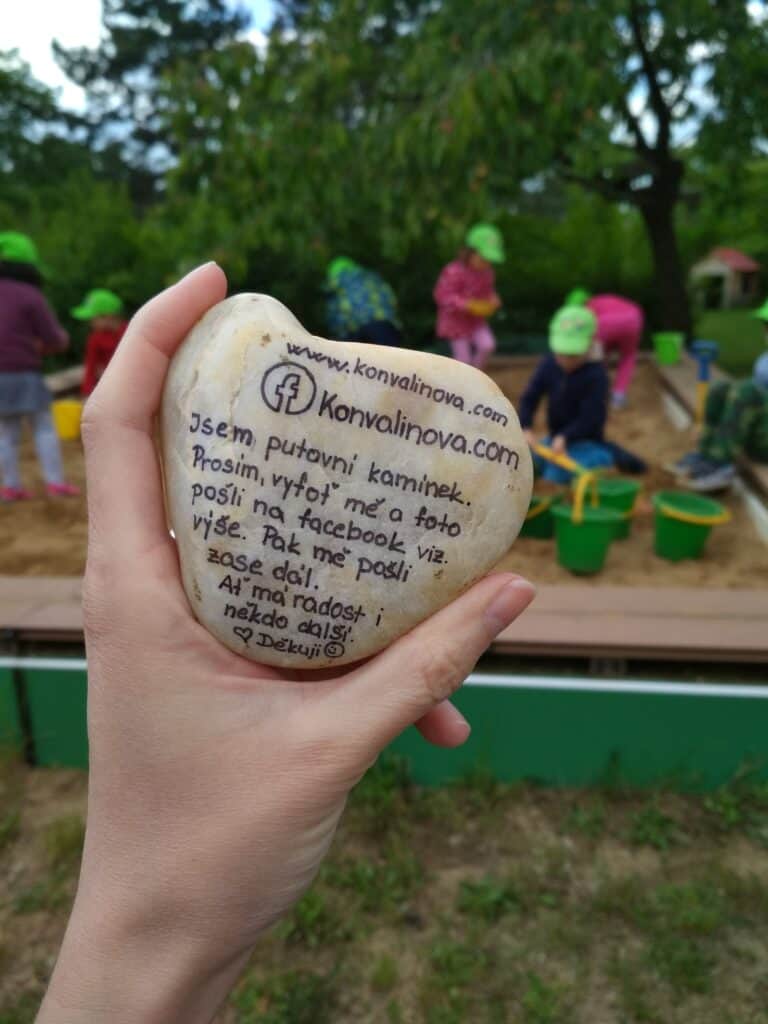 www.konvalinova.com
Konvalinova.com
Jsem putovní kamínek.
Prosím, vyfoť mě a foto
pošli na facebook viz.
výše. Pak mě pošli
zase dál.
Ať má radost i
někdo další.
♡ Děkuji ☺